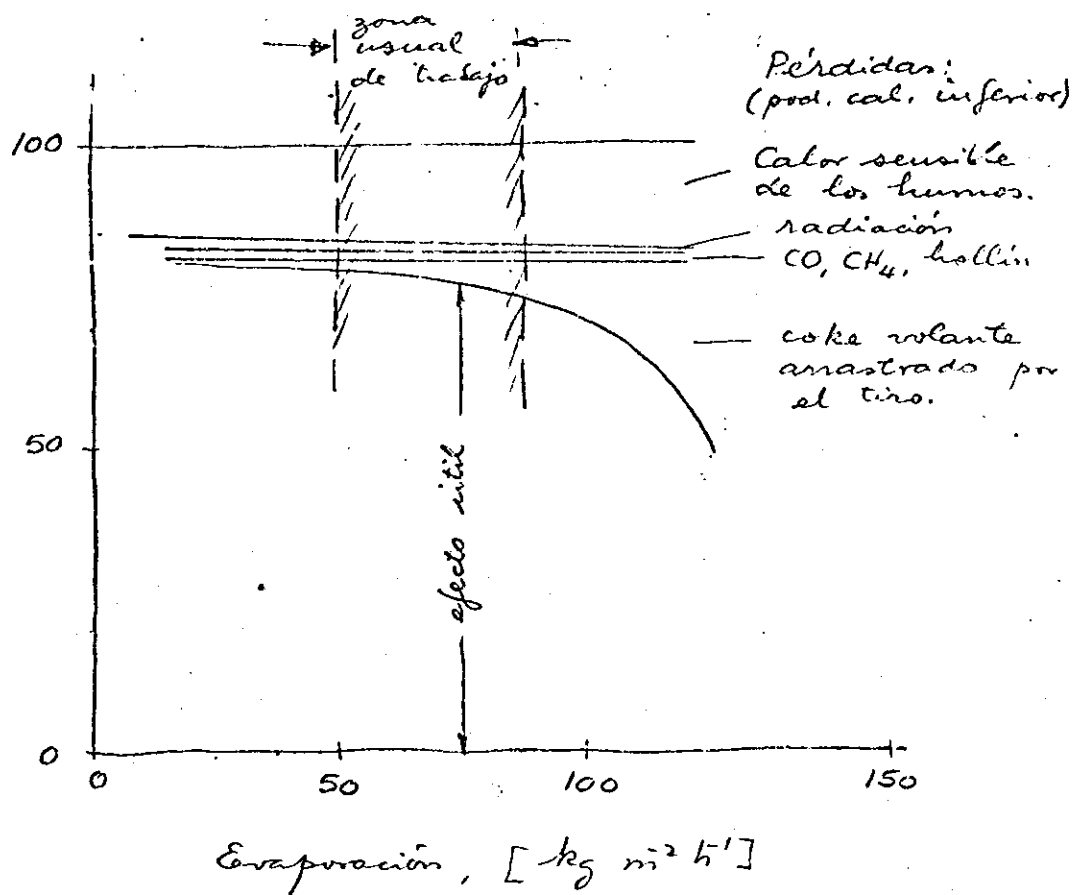 zona
usual
de trabajo
Pérdidas:
(pod. cal. inferior)
100
Calor sensible
de los humos.
radiación
CO, CH4, hollín
coke volante
arrastrado por
el tiro.
50
efecto útil
0
0 50 100 150
Evaporación, [kg m² h¹]